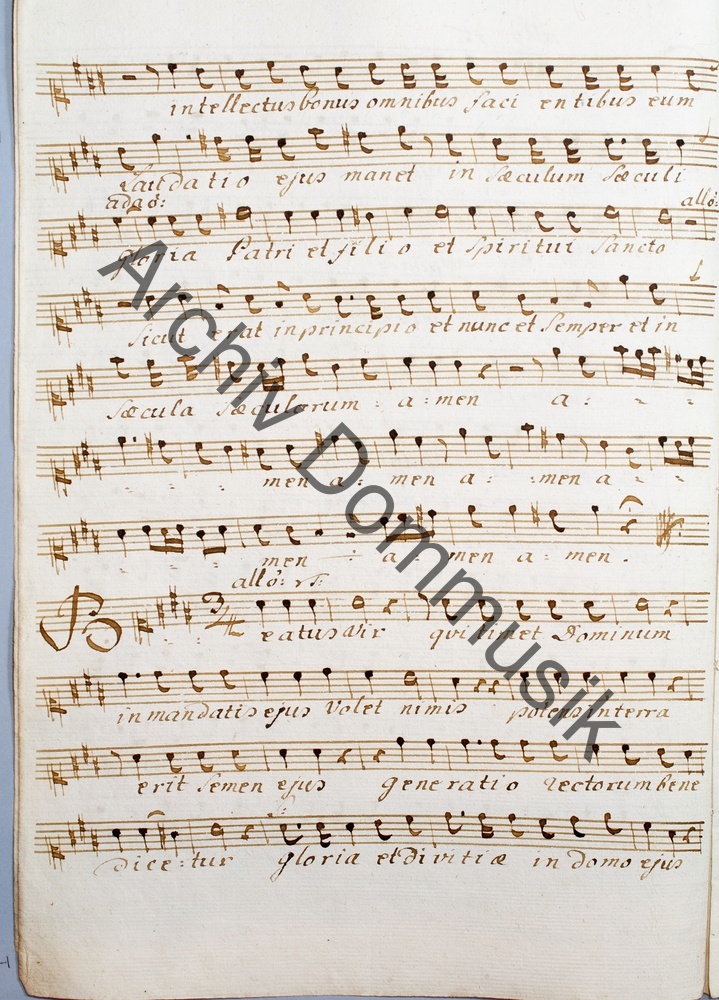 intellectus bonus omnibus faci entibus eum
Laudatio ejus manet in sæculum sæculi
adgo: allo:
gloria Patri et filio et spiritui sancto
sicut erat in principio et nunc et semper et in
sæcula sæculorum : a : men a :
men a : men a : men a
men a : men a : men .
allo:
3/4
Beatus Vir qui timet Dominum
in mandatis ejus volet nimis potens in terra
erit semen ejus generatio rectorum bene
dice : tur gloria et divitiæ in domo ejus
Archiv Dommusik